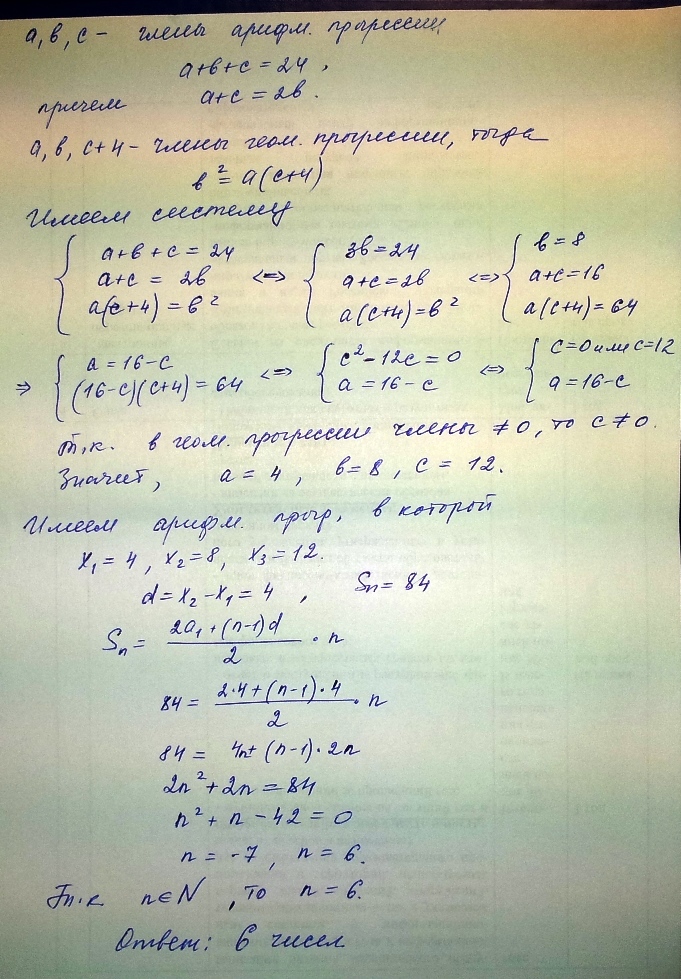 a, b, c - члены арифм. прогрессии
a+b+c = 24,
причем a+c = 2b.
a, b, c+4 - члены геом. прогрессии, тогда
b² = a(c+4)
Имеем систему
{ a+b+c = 24 <=> { 3b = 24 <=> { b = 8
a+c = 2b a+c = 2b a+c = 16
a(c+4) = b² a(c+4) = b² a(c+4) = 64
=> { a = 16-c <=> { c²-12c = 0 <=> { c=0 или c=12
(16-c)(c+4) = 64 a = 16-c a = 16-c
Т.к. в геом. прогрессии члены ≠0, то c≠0.
Значит, a = 4, b = 8, c = 12.
Имеем арифм. прогр., в которой
x₁ = 4, x₂ = 8, x₃ = 12.
d = x₂ - x₁ = 4, Sn = 84
Sn = (2a₁ + (n-1)d)/2 · n
84 = (2·4 + (n-1)·4)/2 · n
84 = 4n + (n-1)·2n
2n² + 2n = 84
n² + n - 42 = 0
n = -7, n = 6.
Т.к. n∈N, то n = 6.
Ответ: 6 чисел